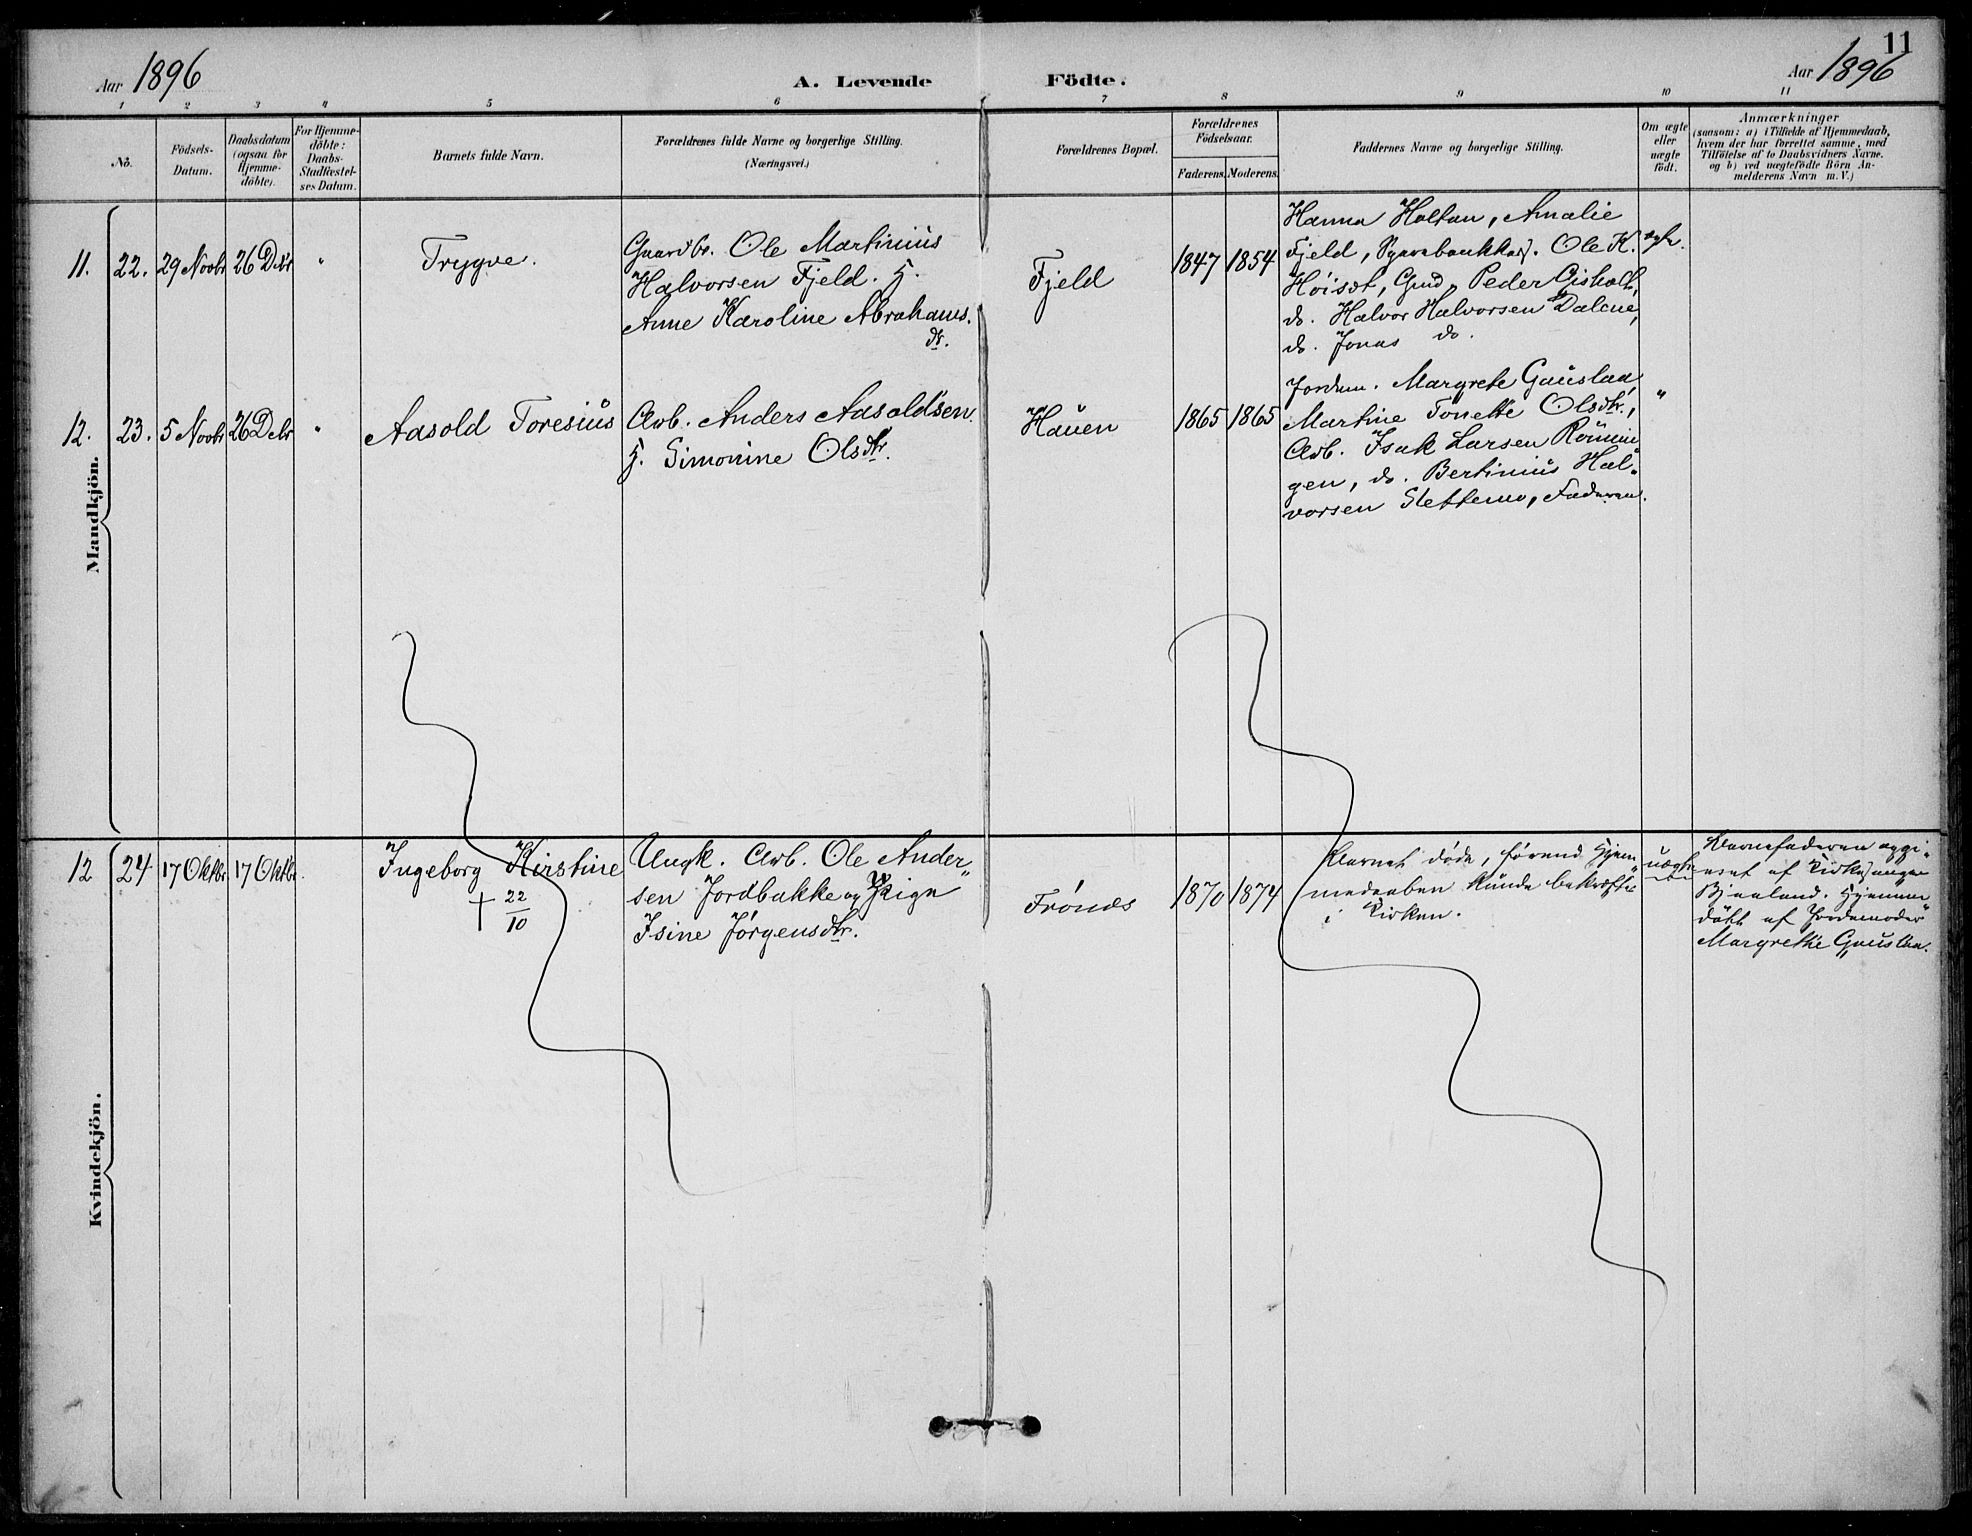 11
Aar 1896
A. Levende Födte.
Aar 1896
1 2 3 4 5 6 7 8 9 10 11
No.
Födsels-
Datum.
Daabsdatum
(ogsaa for
Hjemme-
döbte).
For Hjemme-
döbte:
Daabs-
Stadfæstel-
ses Datum.
Barnets fulde Navn.
Forældrenes fulde Navne og borgerlige Stilling.
(Næringsvei.)
Forældrenes Bopæl.
Forældrenes
Födselsaar.
Faderens. Moderens.
Faddernes Navne og borgerlige Stilling.
Om ægte
eller
uægte
födt.
Anmærkninger
(saasom: a) i Tilfælde af Hjemmedaab,
hvem der har forrettet samme, med
Tilföielse af to Daabsvidners Navne.
og b) ved uægtefödte Börn An-
melderens Navn m. V.)
Mandkjön.
11. 22. 29 Novbr 26 Dbr "
Trygve.
Gaardbr. Ole Martinius
Halvorsen Fjeld. H.
Anne Karoline Abrahams.
dr.
Fjeld
1847 1854
Hanna Holtan, Amalie
Fjeld, Ole K.
Höisæt, Gmd. Peder Eisholt,
do. Halvor Halvorsen Dalene,
do. Jonas do.
ægte.
12. 23. 5 Novbr 26 Dcbr "
Aasold Toresius
Arb. Anders Aasoldsen.
H. Simonine Olsdtr.
Hauen
1865 1865
Jordm. Margrete Gauslaa,
Martine Tonette Olsdtr.,
Arb. Isak Larsen Rönnin
gen, do. Bertinius Hal-
vorsen Slettemo, Faderen.
"
Kvindekjön.
12 24 17 Oktbr 17 Oktbr.
Ingeborg Kirstine
† 22/10
Ungk. Arb. Ole Ander-
sen Jordbakke og Pige
Isine Jörgensdtr.
Frönes
1870 1874
Barnet döde, förend Hjem-
medaaben kunde bekræftes
i Kirken.
uægte
Barnefaderen opgi-
vet af Kirkesanger
Bjaaland. Hjemme-
döbt af Jordemoder
Margrethe Gauslaa.